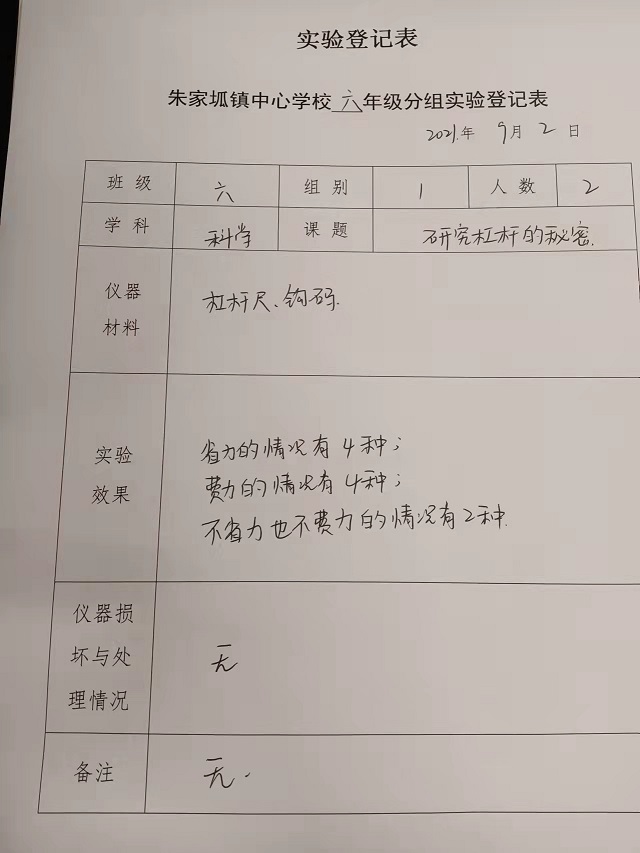 实验登记表
朱家坬镇中心学校六年级分组实验登记表
2021.年 9月 2 日
班级 六 组别 1 人数 2
学科 科学 课题 研究杠杆的秘密.
仪器材料 杠杆尺、钩码.
实验效果
省力的情况有4种；
费力的情况有4种；
不省力也不费力的情况有2种.
仪器损坏与处理情况 无
备注 无.